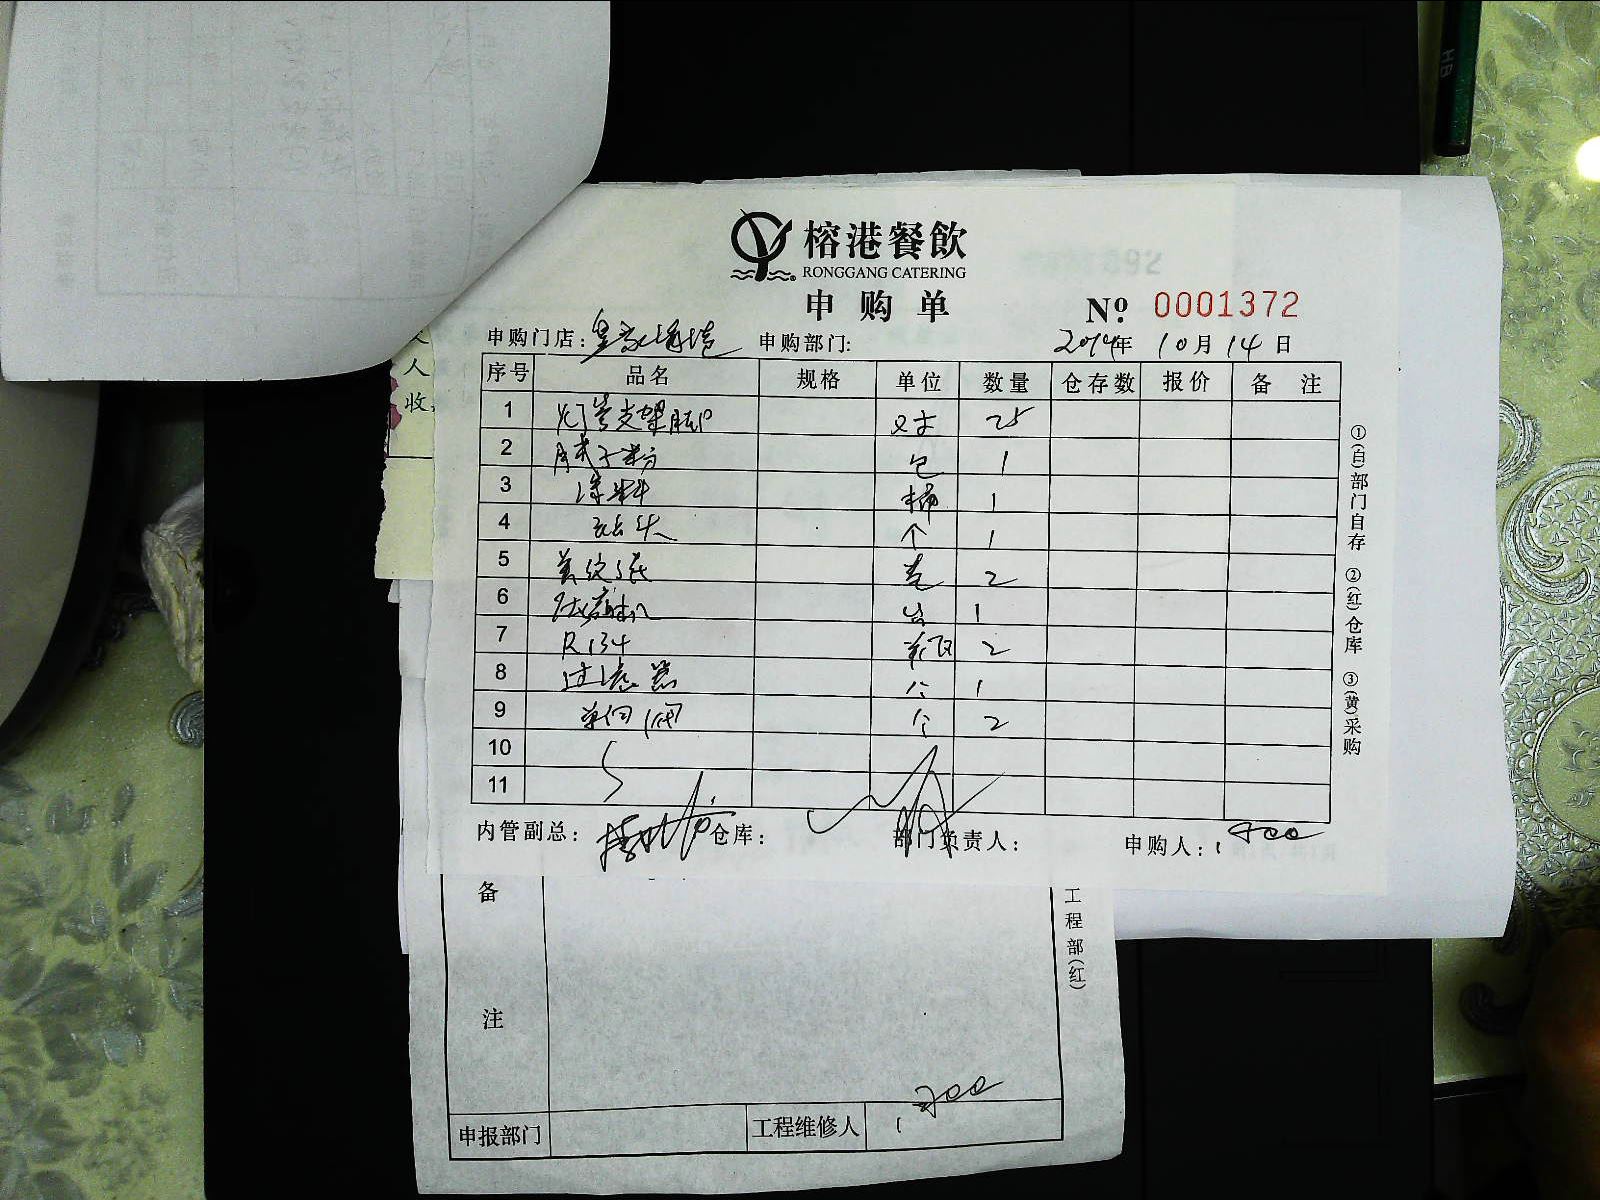 HB
人
收
榕港餐飲
RONGGANG CATERING
申购单
Nº: 0001372
申购门店: 申购部门: 2014年 10月 14日
序号 品名 规格 单位 数量 仓存数 报价 备 注
1 灯管支架脚 对 25
2 腻子粉 包 1
3 涂料 桶 1
4 钻头 个 1
5 卷 2
6 台 1
7 R134 瓶 2
8 过滤器 个 1
9 单向阀 个 2
10
11
内管副总: 仓库: 部门负责人: 申购人:
①(白)部门自存 ②(红)仓库 ③(黄)采购
备
注
工程部(红)
申报部门 工程维修人